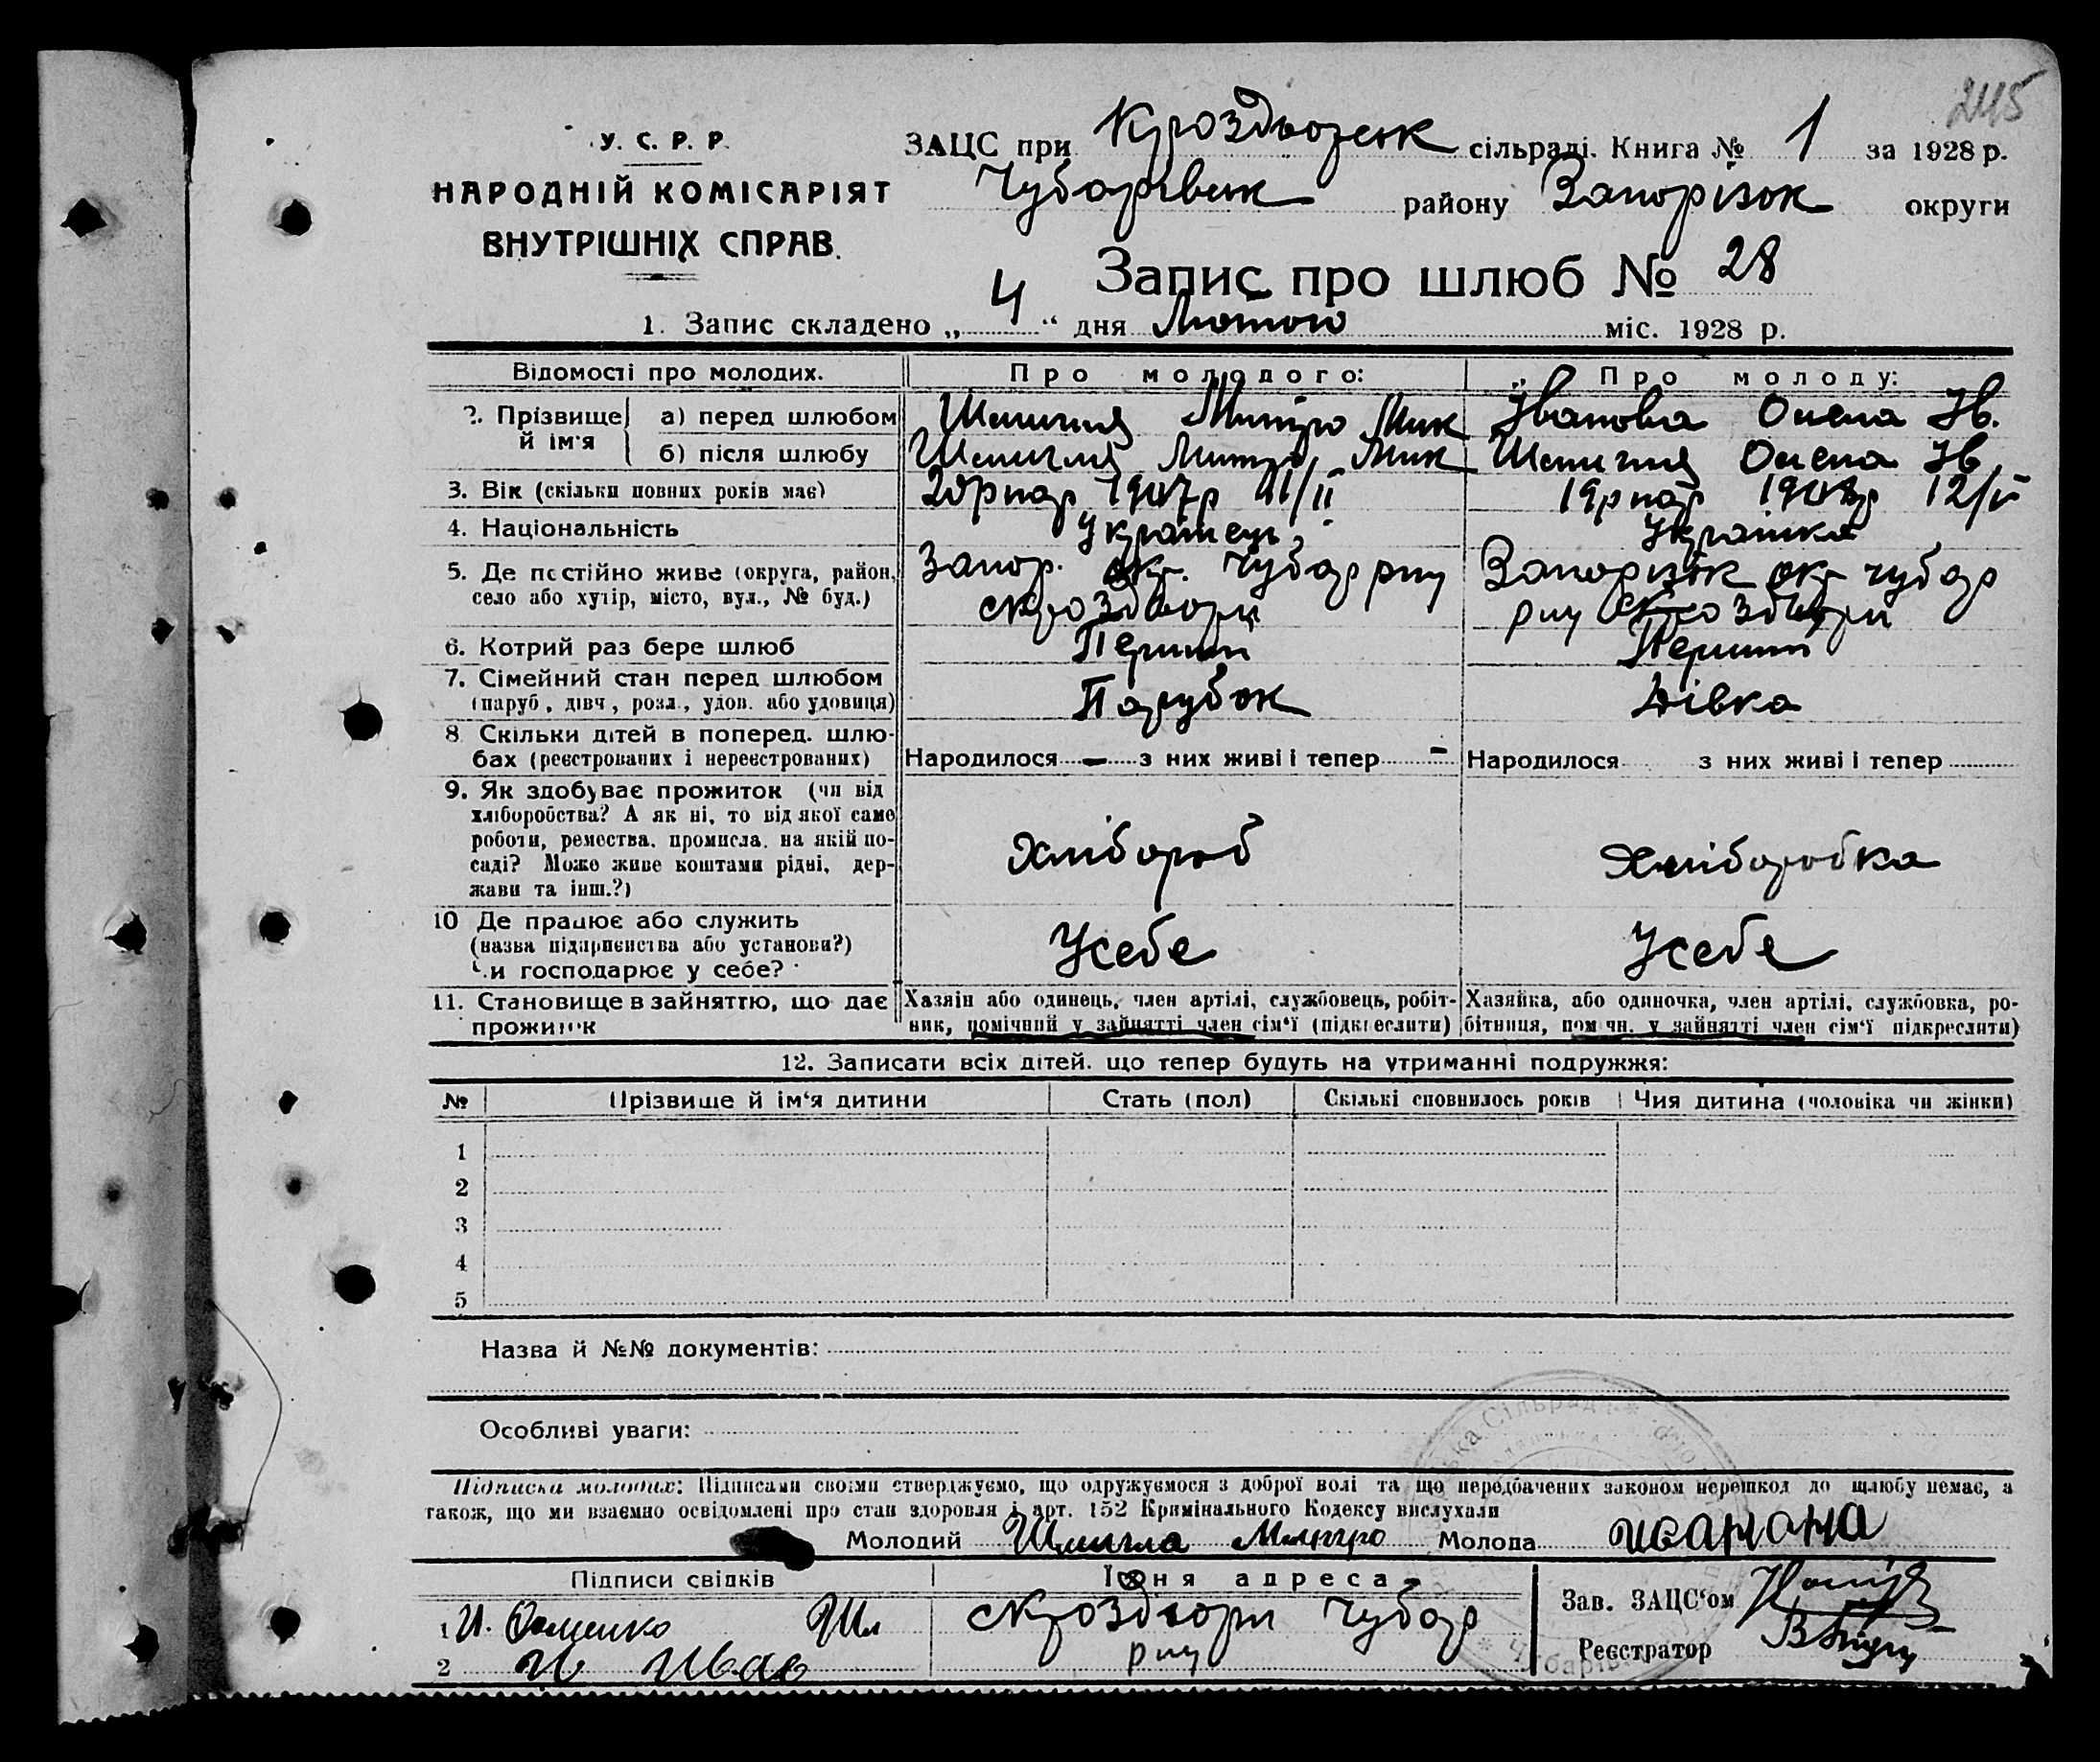 245
У. С. Р. Р.
НАРОДНІЙ КОМІСАРІЯТ
ВНУТРІШНІХ СПРАВ.
ЗАЦС при Кроздворськ сільраді. Книга № 1 за 1928 р.
Чубарівськ району Запорізок округи
Запис про шлюб № 28
1. Запис складено „4“ дня Лютого міс. 1928 р.
Відомості про молодих. Про молодого: Про молоду:
2. Прізвище й ім'я а) перед шлюбом Митро Мик Іванова Олена Ів.
б) після шлюбу Митро Мик Олена Ів
3. Вік (скільки повних років має) 20р нар 1907р 19р нар
4. Національність Українець Українка
5. Де постійно живе (округа, район, Запор. окр. Чубар рну Запорізок окр Чубар
село або хутір, місто, вул., № буд.) с Кроздвори рну с Кроздвори
6. Котрий раз бере шлюб Перший Перший
7. Сімейний стан перед шлюбом
(паруб., дівч., розл., удов. або удовиця) Парубок Дівка
8 Скільки дітей в поперед. шлю-
бах (реєстрованих і нереєстрованих) Народилося — з них живі і тепер - Народилося з них живі і тепер
9. Як здобуває прожиток (чи від
хліборобства? А як ні, то від якої саме
роботи, ремества, промисла, на якій по-
саді? Може живе коштами рідні, дер-
жави та інш.?) Хлібороб Хлiборобка
10 Де працює або служить
(назва підприємства або установи?)
Чи господарює у себе? Усебе Усебе
11. Становище в зайняттю, що дає Хазяїн або одинець, член артілі, службовець, робіт- Хазяйка, або одиночка, член артілі, службовка, ро-
прожиток ник, помічний у зайнятті член сім'ї (підкреслити) бітниця, помічн. у зайнятті член сім'ї підкреслити)
12. Записати всіх дітей, що тепер будуть на утриманні подружжя:
№ Прізвище й ім'я дитини Стать (пол) Скількі сповнилось років Чия дитина (чоловіка чи жінки)
1
2
3
4
5
Назва й №№ документів:
Особливі уваги:
Підписка молодих: Підписами своїми стверджуємо, що одружуємося з доброї волі та що передбачених законом перешкод до шлюбу немає, а
також, що ми взаємно освідомлені про стан здоровля і арт. 152 Кримінального Кодексу вислухали
Молодий Митро Молода
Підписи свідків Їхня адреса
1 с Кроздвори Чубар
2 рну
Зав. ЗАЦС'ом
Реєстратор